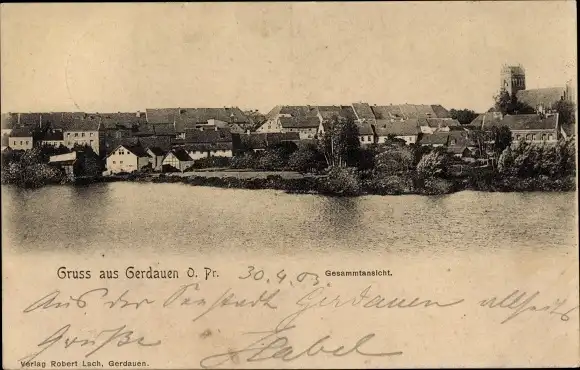 Gruss aus Gerdauen O. Pr. 30.4.03 Gesammtansicht.
Aus der Seestadt Gerdauen allseits
Grüße Habel
Verlag Robert Lach, Gerdauen.